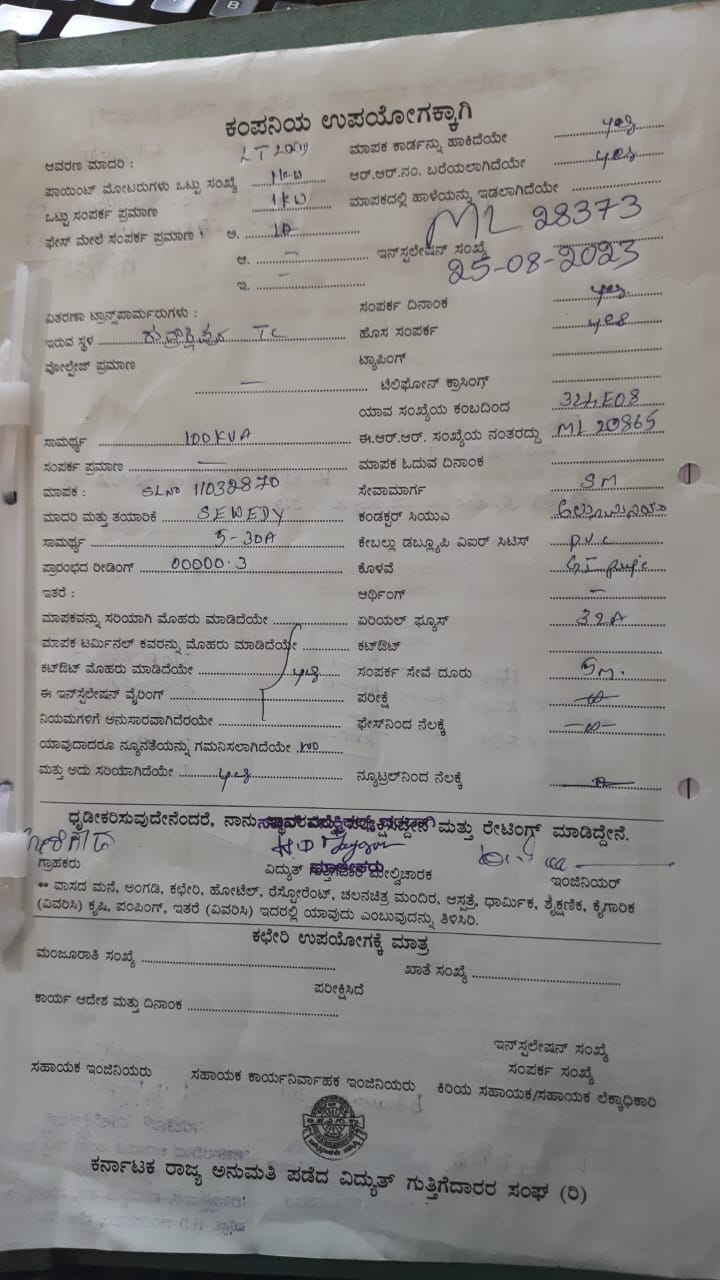 ಕಂಪನಿಯ ಉಪಯೋಗಕ್ಕಾಗಿ
ಆವರಣ ಮಾದರಿ : LT
ಮಾಪಕ ಕಾರ್ಡನ್ನು ಹಾಕಿದೆಯೇ yes
ಪಾಯಿಂಟ್ ಮೋಟರುಗಳು ಒಟ್ಟು ಸಂಖ್ಯೆ
ಆರ್.ಆರ್.ನಂ. ಬರೆಯಲಾಗಿದೆಯೇ yes
ಒಟ್ಟು ಸಂಪರ್ಕ ಪ್ರಮಾಣ 1KW
ಮಾಪಕದಲ್ಲಿ ಹಾಳೆಯನ್ನು ಇಡಲಾಗಿದೆಯೇ
ಫೇಸ್ ಮೇಲೆ ಸಂಪರ್ಕ ಪ್ರಮಾಣ । ಅ.
ML 28373
ಆ. —
ಇನ್‌ಸ್ಟಲೇಷನ್ ಸಂಖ್ಯೆ
25-08-2023
ಇ. —
ವಿತರಣಾ ಟ್ರಾನ್ಸ್‌ಪಾರ್ಮರುಗಳು :
ಸಂಪರ್ಕ ದಿನಾಂಕ yes
ಇರುವ ಸ್ಥಳ TC
ಹೊಸ ಸಂಪರ್ಕ yes
ವೋಲ್ಟೇಜ್ ಪ್ರಮಾಣ —
ಟ್ಯಾಪಿಂಗ್
ಟೆಲಿಫೋನ್ ಕ್ರಾಸಿಂಗ್
ಯಾವ ಸಂಖ್ಯೆಯ ಕಂಬದಿಂದ
ಸಾಮರ್ಥ್ಯ 100KVA
ಈ.ಆರ್.ಆರ್. ಸಂಖ್ಯೆಯ ನಂತರದ್ದು ML 20865
ಸಂಪರ್ಕ ಪ್ರಮಾಣ —
ಮಾಪಕ ಓದುವ ದಿನಾಂಕ
ಮಾಪಕ : SLNo 11032870
ಸೇವಾಮಾರ್ಗ SM
ಮಾದರಿ ಮತ್ತು ತಯಾರಿಕೆ SEWEDY
ಕಂಡಕ್ಟರ್ ಸಿಯುಎ
ಸಾಮರ್ಥ್ಯ 5-30A
ಕೇಬಲ್ಲು ಡಬ್ಲ್ಯೂಪಿ ವಿಐರ್ ಸಿಟಿಸ್ P.V.C
ಪ್ರಾರಂಭದ ರೀಡಿಂಗ್ 00000.3
ಕೊಳವೆ GI pipe
ಇತರೆ :
ಆರ್ಥಿಂಗ್ —
ಮಾಪಕವನ್ನು ಸರಿಯಾಗಿ ಮೊಹರು ಮಾಡಿದೆಯೇ
ಏರಿಯಲ್ ಫ್ಯೂಸ್ 32A
ಮಾಪಕ ಟರ್ಮಿನಲ್ ಕವರನ್ನು ಮೊಹರು ಮಾಡಿದೆಯೇ
ಕಟ್‌ಔಟ್
ಕಟ್‌ಔಟ್ ಮೊಹರು ಮಾಡಿದೆಯೇ yes
ಸಂಪರ್ಕ ಸೇವೆ ದೂರು 5m.
ಈ ಇನ್‌ಸ್ಟಲೇಷನ್ ವೈರಿಂಗ್
ಪರೀಕ್ಷೆ
ನಿಯಮಗಳಿಗೆ ಅನುಸಾರವಾಗಿದೆರಯೇ
ಫೇಸ್‌ನಿಂದ ನೆಲಕ್ಕೆ
ಯಾವುದಾದರೂ ನ್ಯೂನತೆಯನ್ನು ಗಮನಿಸಲಾಗಿದೆಯೇ no
ಮತ್ತು ಅದು ಸರಿಯಾಗಿದೆಯೇ yes
ನ್ಯೂಟ್ರಲ್‌ನಿಂದ ನೆಲಕ್ಕೆ
ಧೃಡೀಕರಿಸುವುದೇನೆಂದರೆ, ನಾನು ಮತ್ತು ರೇಟಿಂಗ್ ಮಾಡಿದ್ದೇನೆ.
ಗ್ರಾಹಕರು
ವಿದ್ಯುತ್ ಮೇಲ್ವಿಚಾರಕ
ಇಂಜಿನಿಯರ್
** ವಾಸದ ಮನೆ, ಅಂಗಡಿ, ಕಛೇರಿ, ಹೋಟೆಲ್, ರೆಸ್ಟೋರೆಂಟ್, ಚಲನಚಿತ್ರ ಮಂದಿರ, ಆಸ್ಪತ್ರೆ, ಧಾರ್ಮಿಕ, ಶೈಕ್ಷಣಿಕ, ಕೈಗಾರಿಕ
(ವಿವರಿಸಿ) ಕೃಷಿ, ಪಂಪಿಂಗ್, ಇತರೆ (ವಿವರಿಸಿ) ಇದರಲ್ಲಿ ಯಾವುದು ಎಂಬುವುದನ್ನು ತಿಳಿಸಿರಿ.
ಕಛೇರಿ ಉಪಯೋಗಕ್ಕೆ ಮಾತ್ರ
ಮಂಜೂರಾತಿ ಸಂಖ್ಯೆ
ಖಾತೆ ಸಂಖ್ಯೆ
ಪರೀಕ್ಷಿಸಿದೆ
ಕಾರ್ಯ ಆದೇಶ ಮತ್ತು ದಿನಾಂಕ
ಇನ್‌ಸ್ಟಲೇಷನ್ ಸಂಖ್ಯೆ
ಸಂಪರ್ಕ ಸಂಖ್ಯೆ
ಸಹಾಯಕ ಇಂಜಿನಿಯರು
ಸಹಾಯಕ ಕಾರ್ಯನಿರ್ವಾಹಕ ಇಂಜಿನಿಯರು
ಕಿರಿಯ ಸಹಾಯಕ/ಸಹಾಯಕ ಲೆಕ್ಕಾಧಿಕಾರಿ
ಕರ್ನಾಟಕ ರಾಜ್ಯ ಅನುಮತಿ ಪಡೆದ ವಿದ್ಯುತ್ ಗುತ್ತಿಗೆದಾರರ ಸಂಘ (ರಿ)